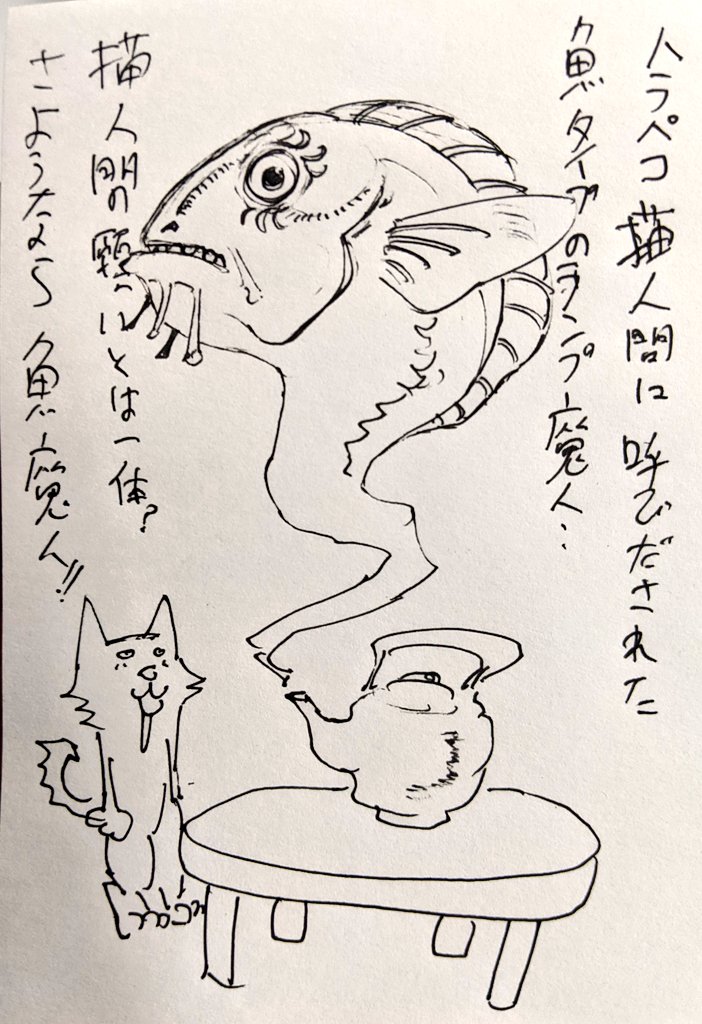 ハラペコ猫人間に呼びだされた
魚タイプのランプ魔人…
猫人間の願いとは一体?
さようなら魚魔人!!